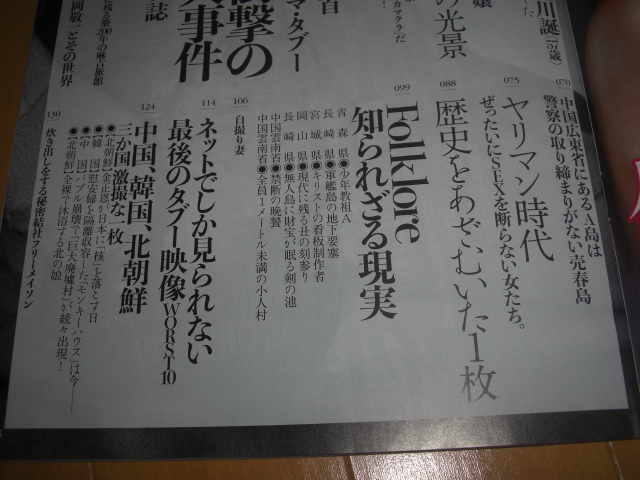 川誕(57歳)
嬢
の光景
カマクラ」だ
マ・タブー
撃の
大事件
誌
残る築200年の廃墟旅館
岡敬一とその世界
070
中国広東省にあるA島は
警察の取り締まりがない売春島
075
ヤリマン時代
ぜったいにSEXを断らない女たち。
088
歴史をあざむいた1枚
099
Folklore
知られざる現実
青森県●少年教祖A
長崎県●軍艦島の地下要塞
宮城県●キリストの看板制作者
岡山県●現代に残る丑の刻参り
長崎県●無人島に財宝が眠る剣の池
中国雲南省●禁断の晩餐
中国雲南省●全員1メートル未満の小人村
106
自撮り妻
114
ネットでしか見られない
最後のタブー映像WORST10
124
中国、韓国、北朝鮮
三か国激撮な一枚
●【北朝鮮】金正恩が日本に「核」を落とす日
●【韓国】慰安婦を隔離収容した「モンキーハウス」は今——
●【中国】バブル崩壊で「巨大廃墟村」が続々出現!
●【北朝鮮】全裸で沐浴する北の娘
130
炊き出しをする秘密結社フリーメイソン